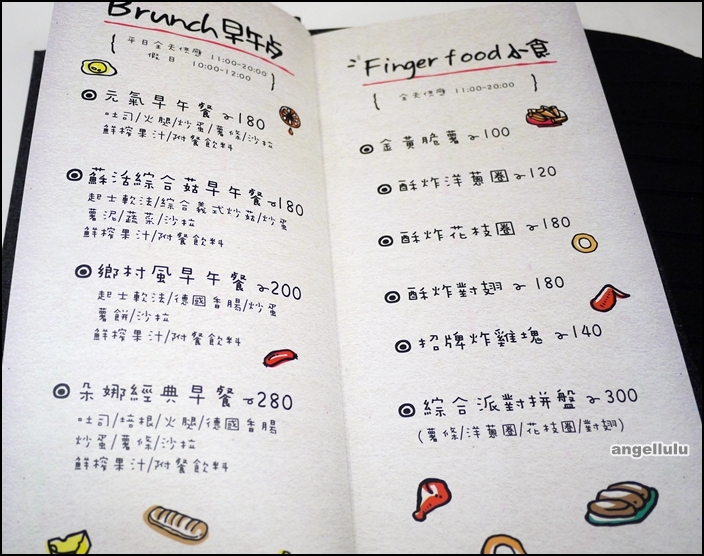 Brunch 早午点
平日全天供應 11:00-20:00
假日 10:00-12:00
元氣早午餐~180
吐司/火腿/炒蛋/薯條/沙拉
鮮榨果汁/附餐飲料
蘇活綜合菇早午餐~180
起士軟法/綜合義式炒菇/炒蛋
薯泥/蔬菜/沙拉
鮮榨果汁/附餐飲料
鄉村風早午餐~200
起士軟法/德國香腸/炒蛋
薯餅/沙拉
鮮榨果汁/附餐飲料
朵娜經典早餐~280
吐司/培根/火腿/德國香腸
炒蛋/薯條/沙拉
鮮榨果汁/附餐飲料
Finger food 小食
全天供應 11:00-20:00
金黃脆薯~100
酥炸洋蔥圈~120
酥炸花枝圈~180
酥炸對翅~180
招牌炸雞塊~140
綜合派對拼盤~300
(薯條/洋蔥圈/花枝圈/對翅)
angellulu